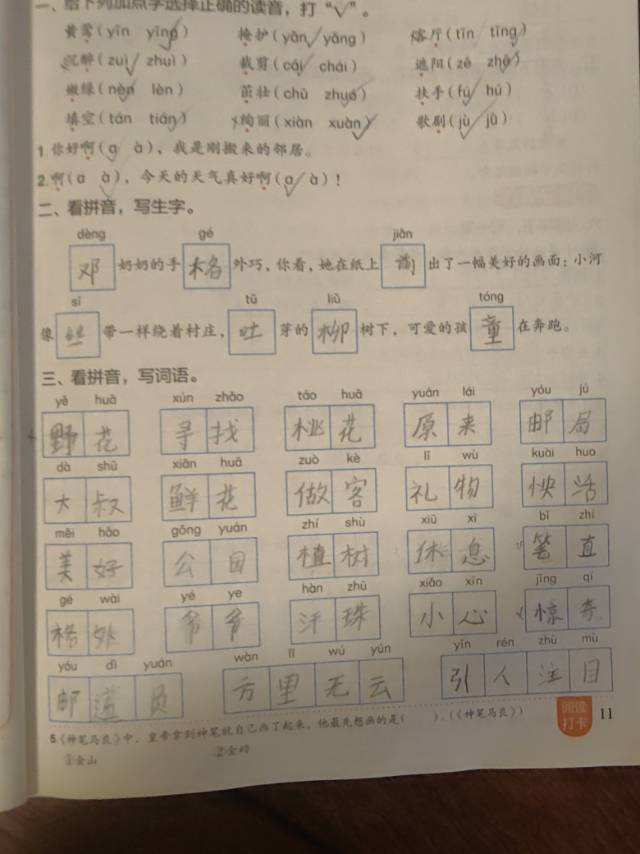 一、给下列加点字选择正确的读音，打“√”。
黄莺(yīn yīng√) 掩护(yǎn√ yǎng) 客厅(tīn tīng√)
沉醉(zuì√ zhuì) 裁剪(cái√ chái) 遮阳(zē zhē√)
嫩绿(nèn√ lèn) 茁壮(chū zhuó√) 扶手(fú√ hú)
填空(tán tián√) 绚丽(xiàn xuàn√) 歌剧(jù√ jū)
1.你好啊(ɑ√ à)，我是刚搬来的邻居。
2.啊(ɑ à)，今天的天气真好啊(ɑ√ à)！
二、看拼音，写生字。
dèng gé jiǎn
邓奶奶的手格外巧，你看，她在纸上剪出了一幅美好的画面：小河
sī tǔ liǔ tóng
像丝带一样绕着村庄，吐芽的柳树下，可爱的孩童在奔跑。
三、看拼音，写词语。
yě huā xún zhǎo táo huā yuán lái yóu jú
野花 寻找 桃花 原来 邮局
dà shū xiān huā zuò kè lǐ wù kuài huo
大叔 鲜花 做客 礼物 快活
měi hǎo gōng yuán zhí shù xiū xi bǐ zhí
美好 公园 植树 休息 笔直
gé wài yé ye hàn zhū xiǎo xīn jīng qí
格外 爷爷 汗珠 小心 惊奇
yóu dì yuán wàn lǐ wú yún yǐn rén zhù mù
邮递员 万里无云 引人注目
5.《神笔马良》中，皇帝拿到神笔就自己画了起来，他最先想画的是( )。(《神笔马良》)
①金山 ②金砖
阅读
打卡
11